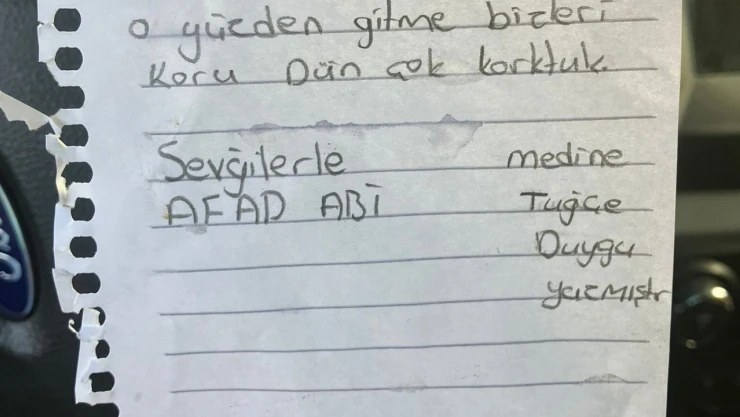 o yüzden gitme bizleri
Koru Dün çok korktuk.
Sevğilerle medine
AFAD ABİ Tuğçe
Duygu
yazmıştr